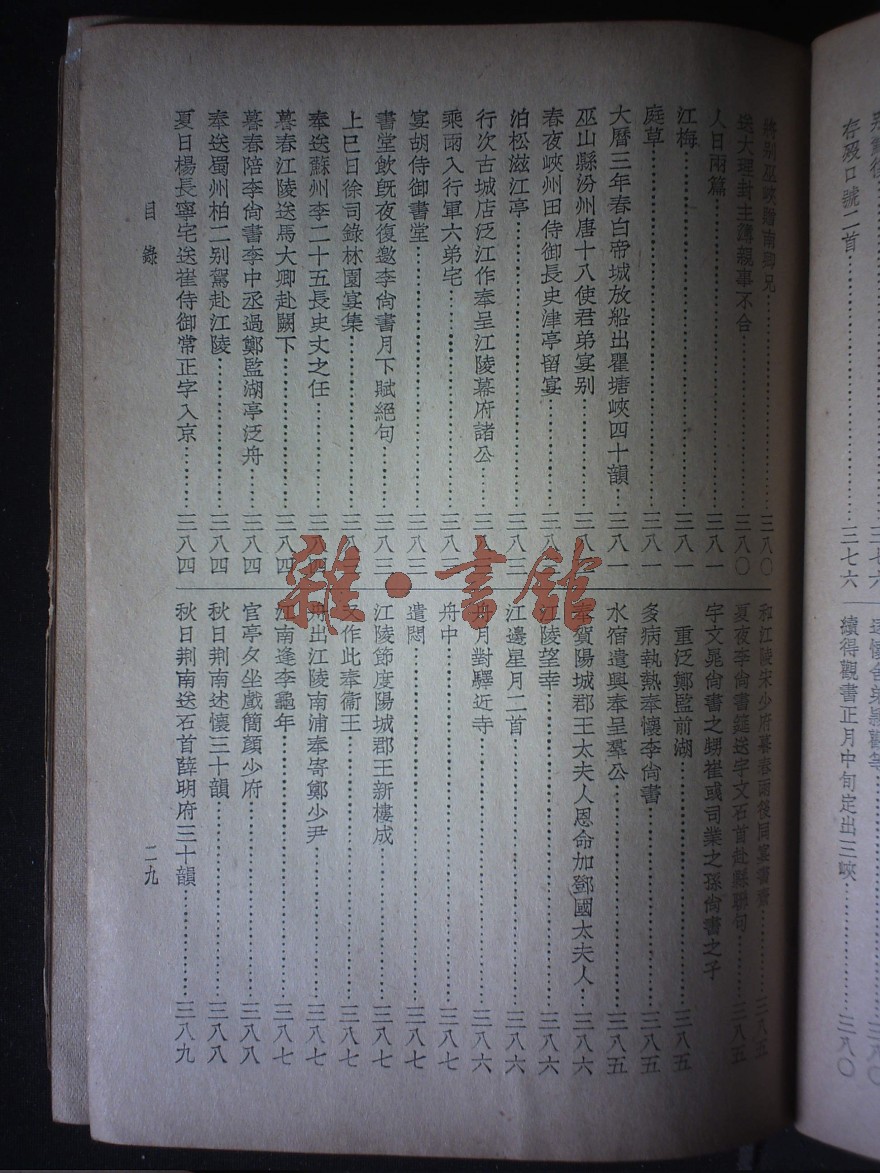 存歿口號二首……三七六
續得觀書正月中旬定出三峽……三八〇
將別巫峽贈南卿兄……三八〇
送大理封主簿親事不合……三八〇
人日兩篇……三八一
江梅……三八一
庭草……三八一
大曆三年春白帝城放船出瞿塘峽四十韻……三八一
巫山縣汾州唐十八使君弟宴別……三八二
春夜峽州田侍御長史津亭留宴……三八二
泊松滋江亭……三八三
行次古城店泛江作奉呈江陵幕府諸公……三八三
乘雨入行軍六弟宅……三八三
宴胡侍御書堂……三八三
書堂飲既夜復邀李尙書月下賦絕句……三八三
上巳日徐司錄林園宴集……三八三
奉送蘇州李二十五長史丈之任……三八四
暮春江陵送馬大卿赴闕下……三八四
暮春陪李尙書李中丞過鄭監湖亭泛舟……三八四
奉送蜀州柏二別駕赴江陵……三八四
夏日楊長寧宅送崔侍御常正字入京……三八四
和江陵宋少府暮春雨後同宴書齋……三八五
夏夜李尙書筵送宇文石首赴縣聯句……三八五
宇文晁尙書之甥崔彧司業之孫尙書之子
重泛鄭監前湖……三八五
多病執熱奉懷李尙書……三八五
水宿遣興奉呈羣公……三八五
奉賀陽城郡王太夫人恩命加鄧國太夫人…三八六
江陵望幸……三八六
江邊星月二首……三八六
舟月對驛近寺……三八六
舟中……三八七
遣悶……三八七
江陵節度陽城郡王新樓成……三八七
又作此奉衞王……三八七
舟出江陵南浦奉寄鄭少尹……三八七
江南逢李龜年……三八七
官亭夕坐戲簡顏少府……三八八
秋日荆南述懷三十韻……三八八
秋日荆南送石首薛明府三十韻……三八九
目錄
二九
雜·書館